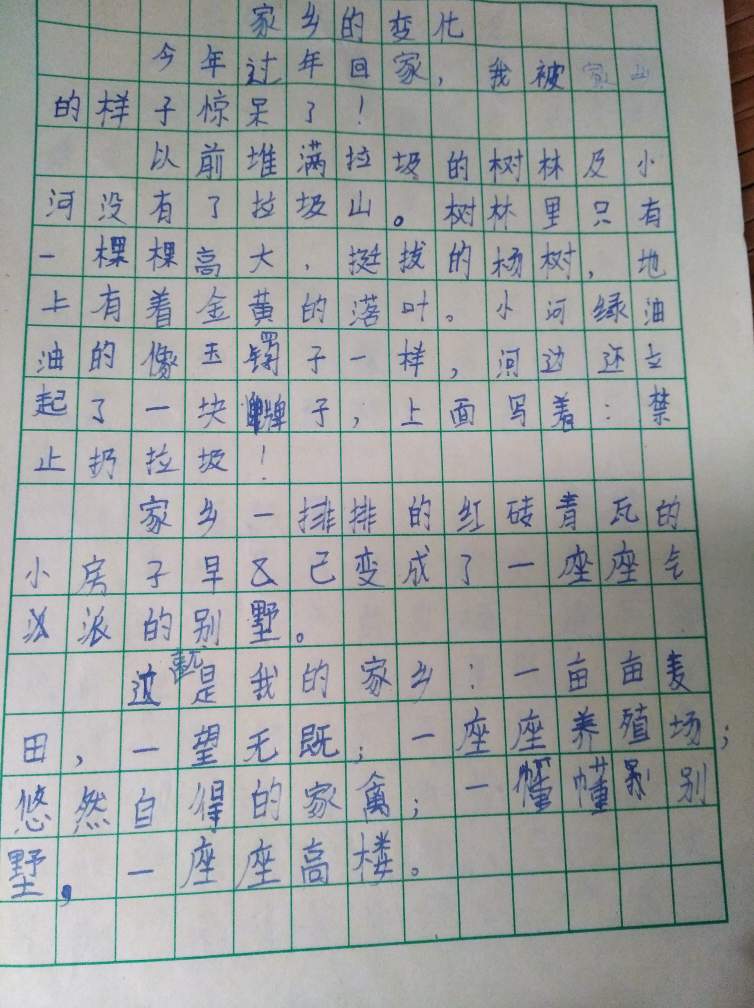 家乡的变化
今年过年回家，我被家
的样子惊呆了！
以前堆满拉圾的树林及小
河没有了拉圾山。树林里只有
一棵棵高大、挺拔的杨树，地
上有着金黄的落叶。小河绿油
油的像玉镯子一样，河边还立
起了一块牌子，上面写着：禁
止扔拉圾！
家乡一排排的红砖青瓦的
小房子早已变成了一座座气
派的别墅。
这就是我的家乡：一亩亩麦
田，一望无既；一座座养殖场；
悠然自得的家禽；一幢幢别
墅，一座座高楼。